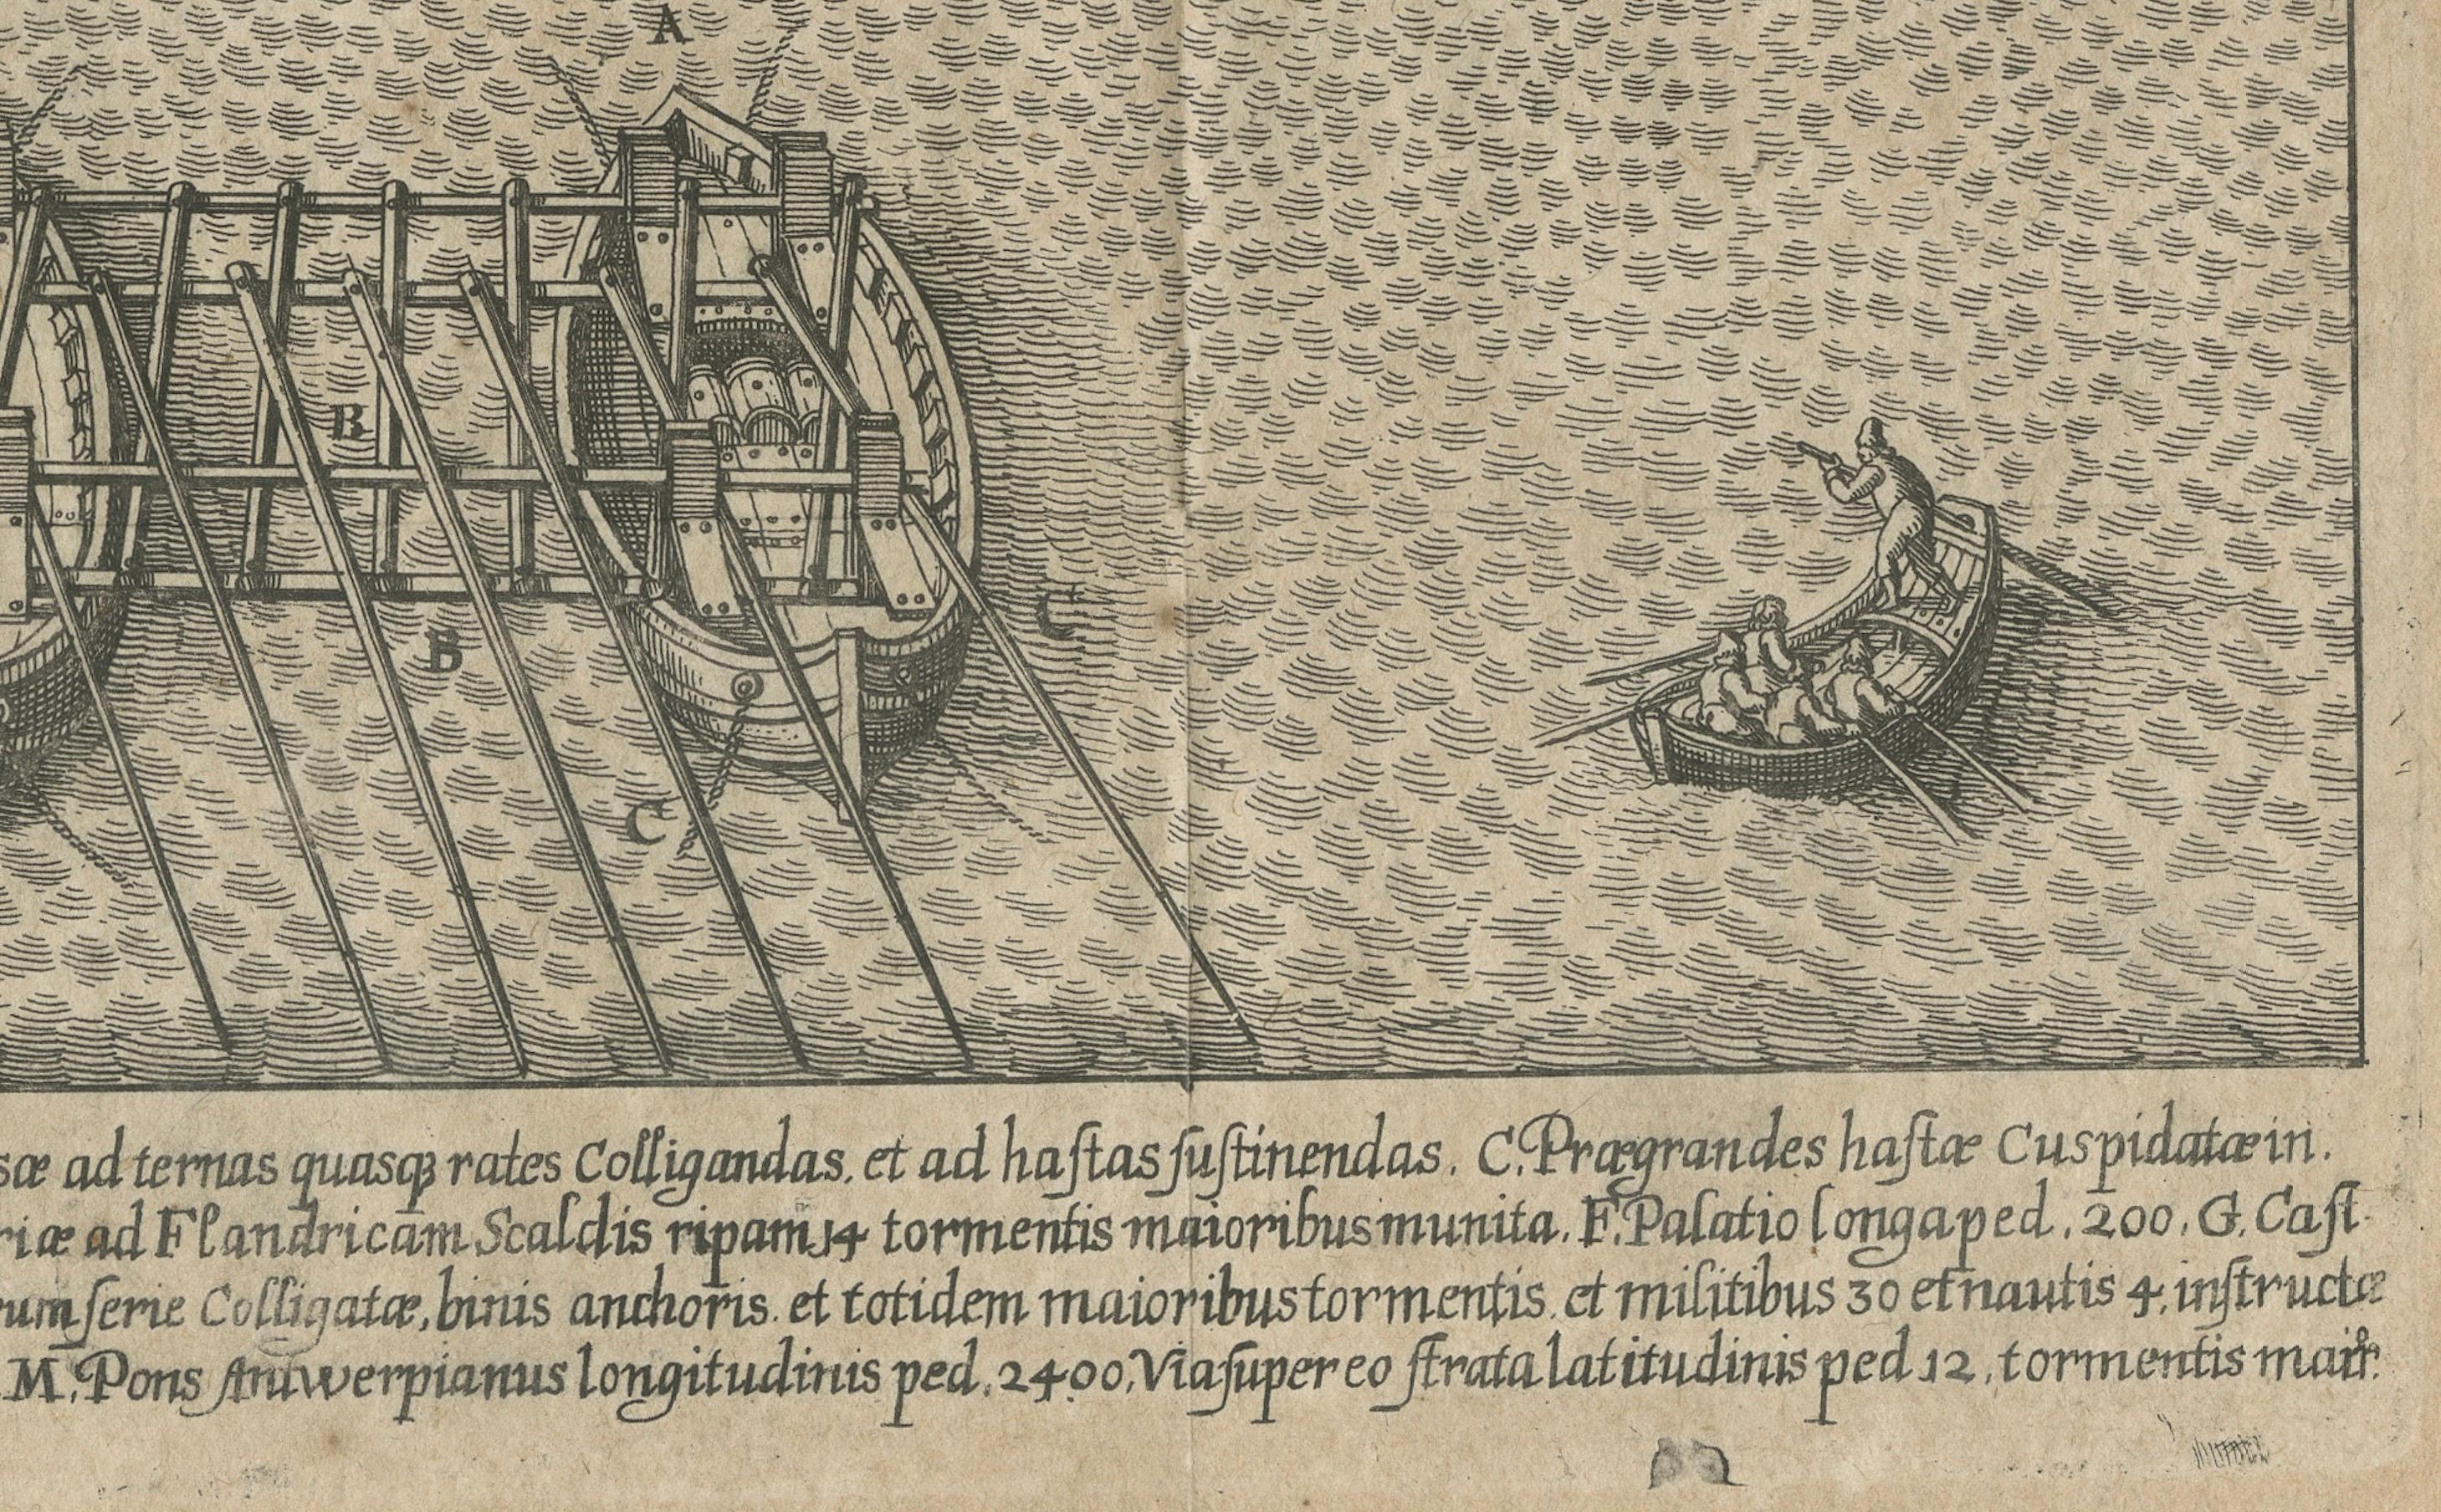 A
B
B
C
C
sæ ad ternas quasqꝫ rates Colligandas. et ad haſtas ſuſtinendas. C. Prægrandes haſtæ Cuspidatæ in.
riæ ad Flandricam Scaldis ripam 14 tormentis maioribus munita. F. Palatio longa ped. 200. G. Caſt
rum ſerie Colligatæ, binis anchoris. et totidem maioribus tormentis. et militibus 30 et nautis 4. inſtructæ
M. Pons Antwerpianus longitudinis ped. 2400. Via ſuper eo ſtrata latitudinis ped 12. tormentis